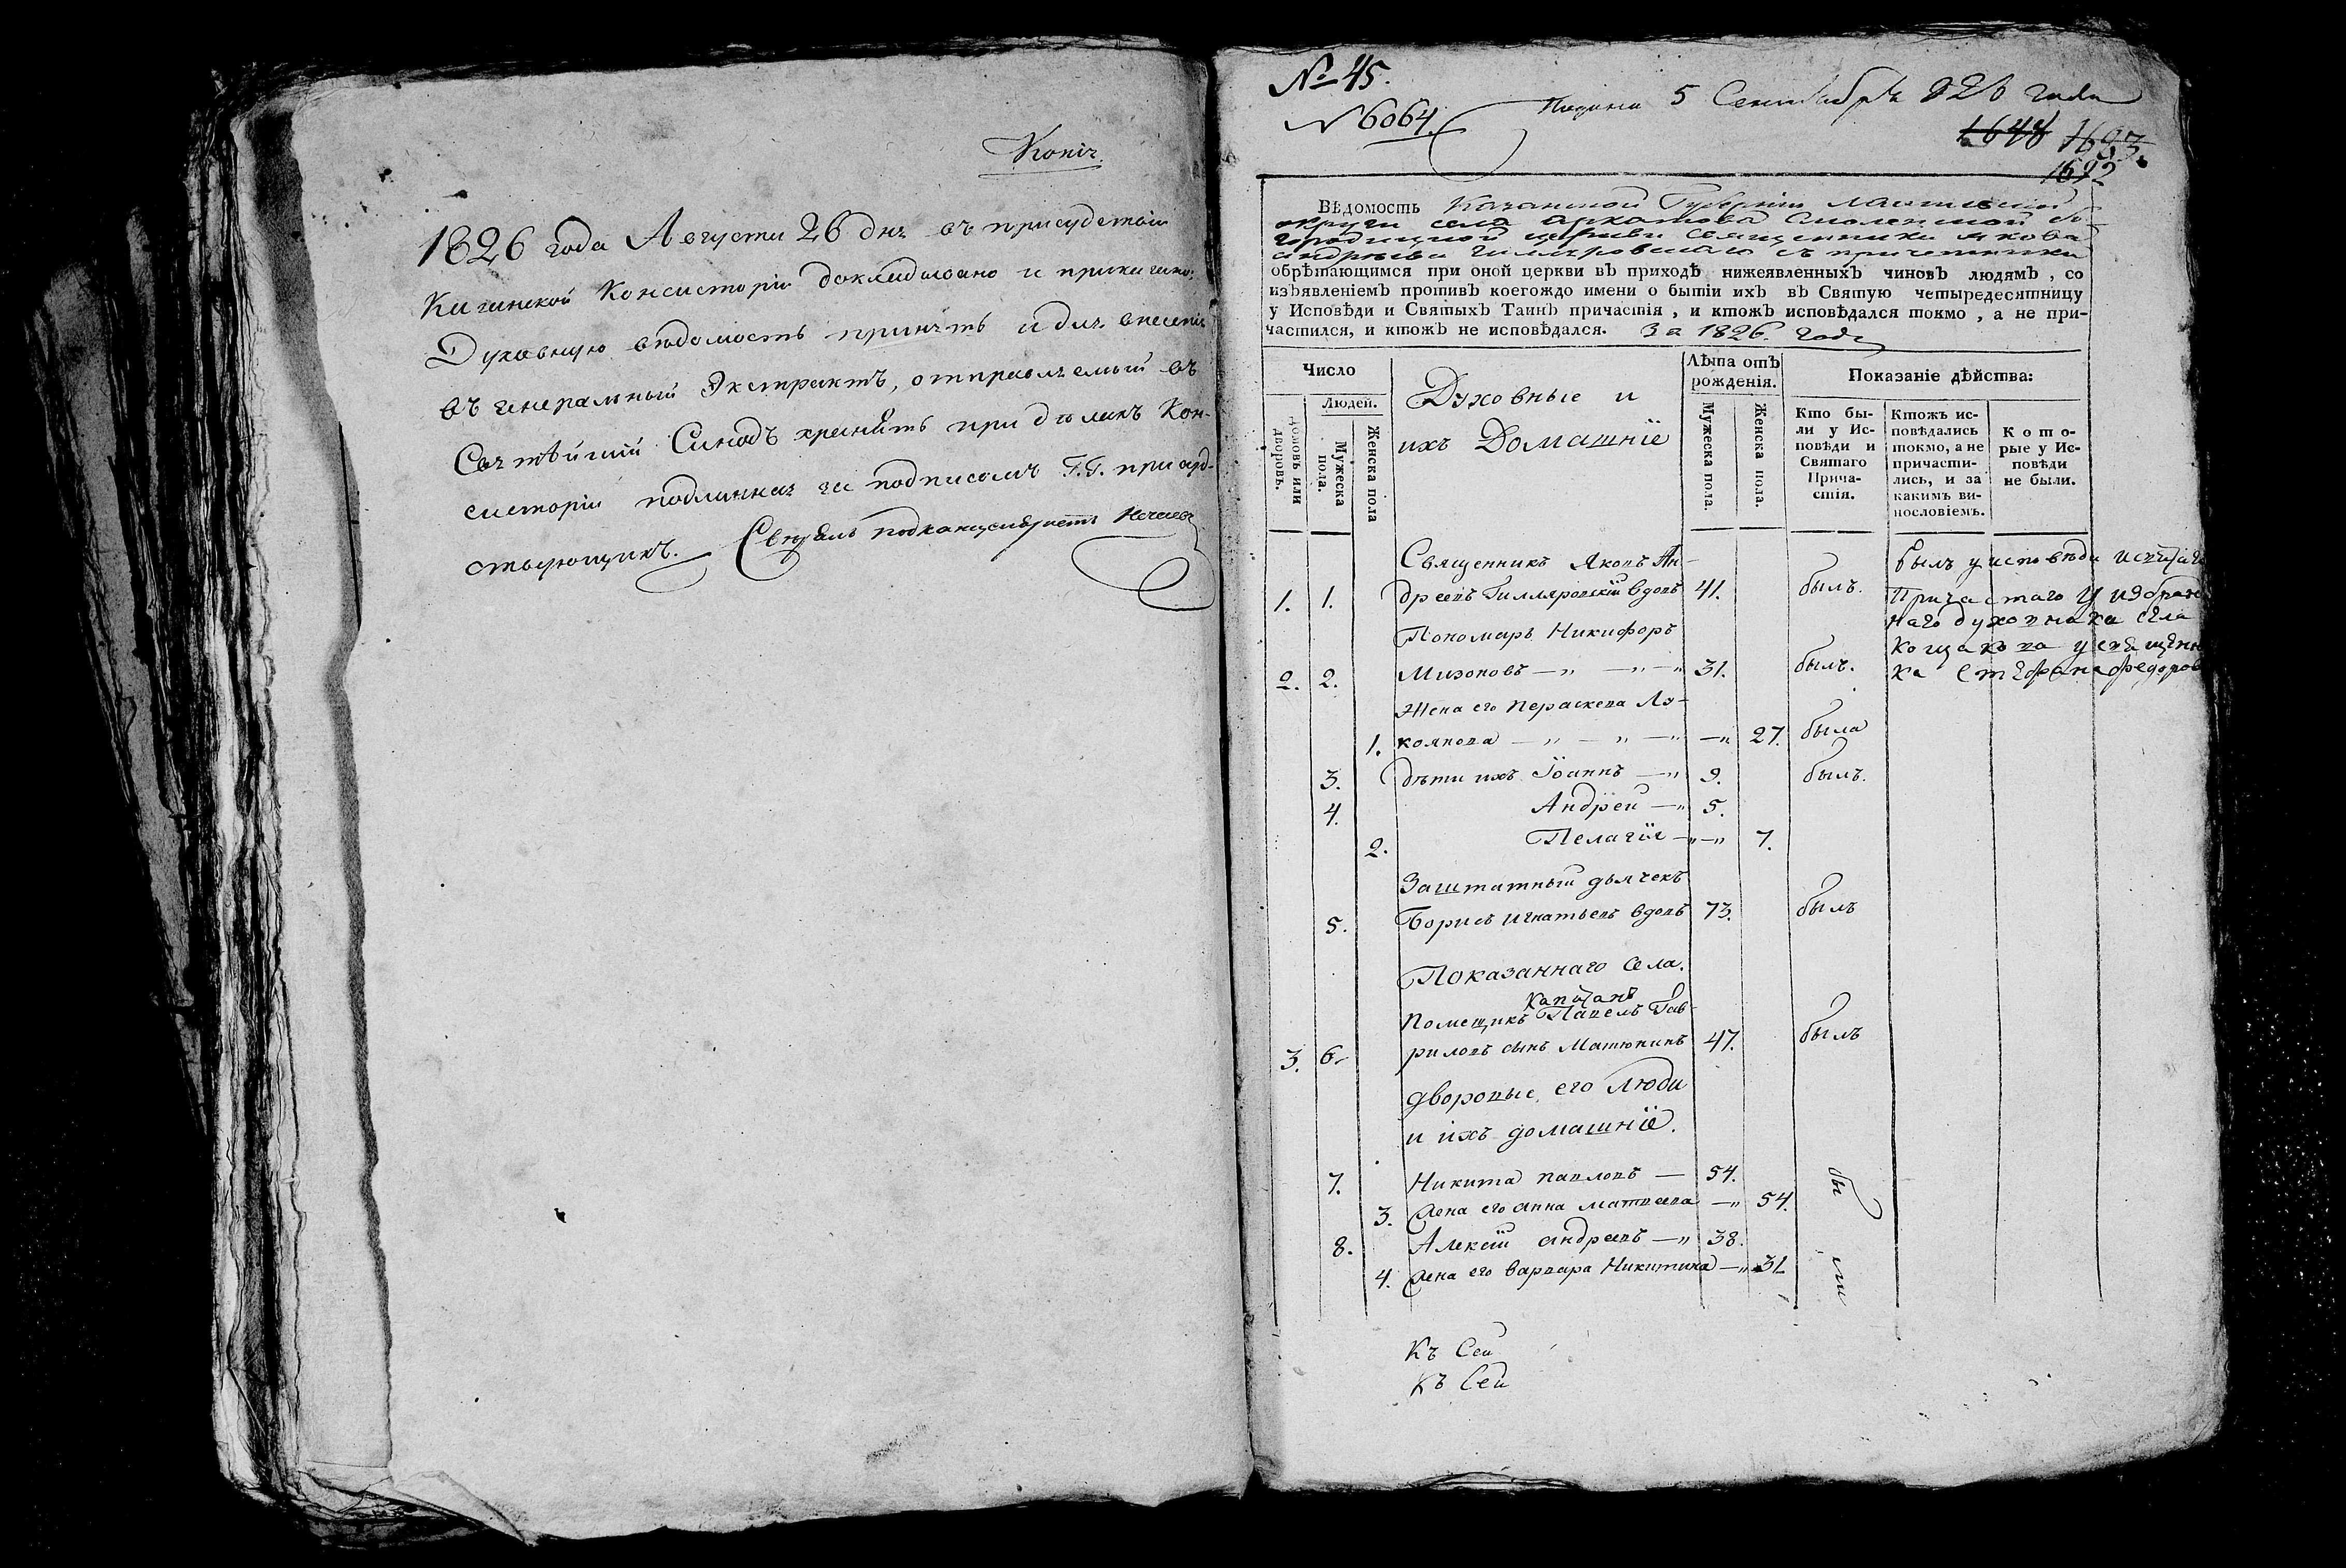 Копія.
1826 года Августа 26 дня въ присудствіи
Казанской Консисторіи докладовано и приказано:
Духовную вѣдомость принять и для внесенія
въ генеральный Экстрактъ, отправляемый въ
Святѣйшій Синодъ хранить при дѣлахъ Кон-
систоріи подлинная за подписомъ Г.Г. присуд-
ствующихъ. Свѣрялъ подканцеляристъ
№ 45.
№ 6064.
Подана 5 Сентября 826 года
1644 1693.
1692
Вѣдомость Казанской Губерніи Лаишевской
округи села Аркатова Смоленской бо-
городицкой церкви священника Якова
Андреева Гилляровскаго съ причетники
обрѣтающимся при оной церкви въ приходѣ нижеявленныхъ чиновъ людямъ, со
изъявленіемъ противъ коегождо имени о бытіи ихъ въ Святую четыредесятницу
у Исповѣди и Святыхъ Таинъ причастія, и ктожъ исповѣдался токмо, а не при-
частился, и ктожъ не исповѣдался. За 1826. годъ
Число
Людей.
домовъ или дворовъ.
Мужеска пола.
Женска пола
Духовные и
ихъ Домашніе
Лѣта отъ
рожденія.
Мужеска пола.
Женска пола.
Показаніе дѣйства:
Кто бы-
ли у Ис-
повѣди и
Святаго
Прича-
стія.
Ктожъ ис-
повѣдались
токмо, а не
причасти-
лись, и за
какимъ ви-
нословіемъ.
Кото-
рые у Ис-
повѣди
не были.
Священникъ Яковъ Ан-
1. 1. дреевъ Гилляровскій вдовъ 41. былъ.
былъ у исповѣди и святаго
Причастаго у избран
наго духовника села
Кощакова у священн
ка Стефана Федоров
Пономарь Никифоръ
2. 2. Мизоновъ —„ —„—„ 31. былъ.
Жена его Пераскева Лу-
1. коянова —„ —„ —„ —„ 27. была
3. дѣти ихъ Іоаннъ —„ 9. былъ.
4. Андрей —„ 5.
2. Пелагія —„ —„ 7.
Заштатный дьячекъ
5. Борисъ Игнатьевъ вдовъ 73. былъ
Показаннаго села.
Капитанъ
Помещикъ Павелъ Гав-
3. 6. риловъ сынъ Матюнинъ 47. былъ
дворовые его люди
и ихъ домашніе.
7. Никита Павловъ — 54. бы
3. Жена его Анна Матвеева —„ 54.
8. Алексій Андреевъ —„ 38.
4. Жена его Варвара Никитина —„ 31 ли
Къ Сей
Къ Сей